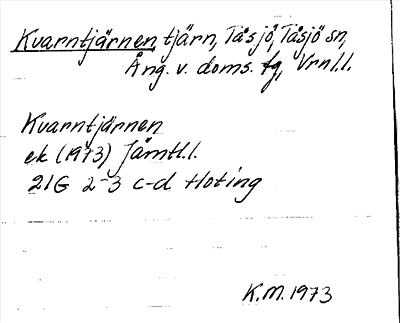 Kvarntjärnen, tjärn, Tåsjö, Tåsjö sn,
Ång. v. doms. fg, Vrnl.l.
Kvarntjärnen
ek (1973) Jämtl.l.
21G 2-3 c-d Hoting
K.M. 1973